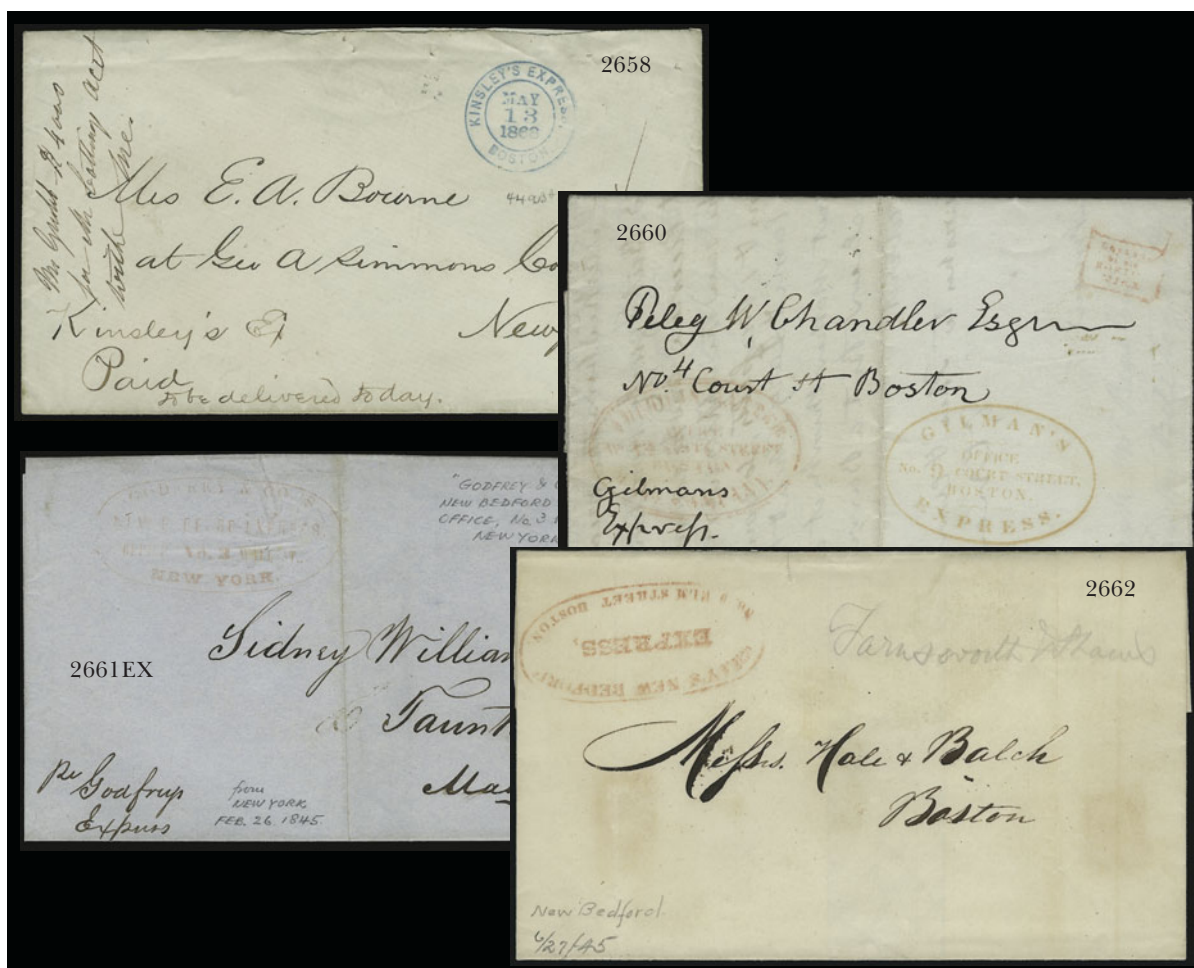 2658
KINSLEY'S EXPRESS.
MAY
13
BOSTON
with me.
Mrs E. A. Bourne
at Geo A Simmons Co
Kinsley's Ex
New
Paid
To be delivered to day.
2660
Peleg W. Chandler Esqr
No. 4 Court St Boston
GILMAN'S
OFFICE
No. 9 COURT STREET,
BOSTON.
EXPRESS.
Gilmans
Express.
2661EX
No. 3
NEW YORK.
"GODFREY &
NEW BEDFORD
OFFICE, No. 3
NEW YORK
Sidney William
Taunt
Mas
Pr Godfreys
Express
from
NEW YORK
FEB. 26. 1845.
2662
No. 9 ELM STREET BOSTON
EXPRESS,
NEW BEDFORD
Farnsworth
Messrs. Hale & Balch
Boston
New Bedford
6/27/45